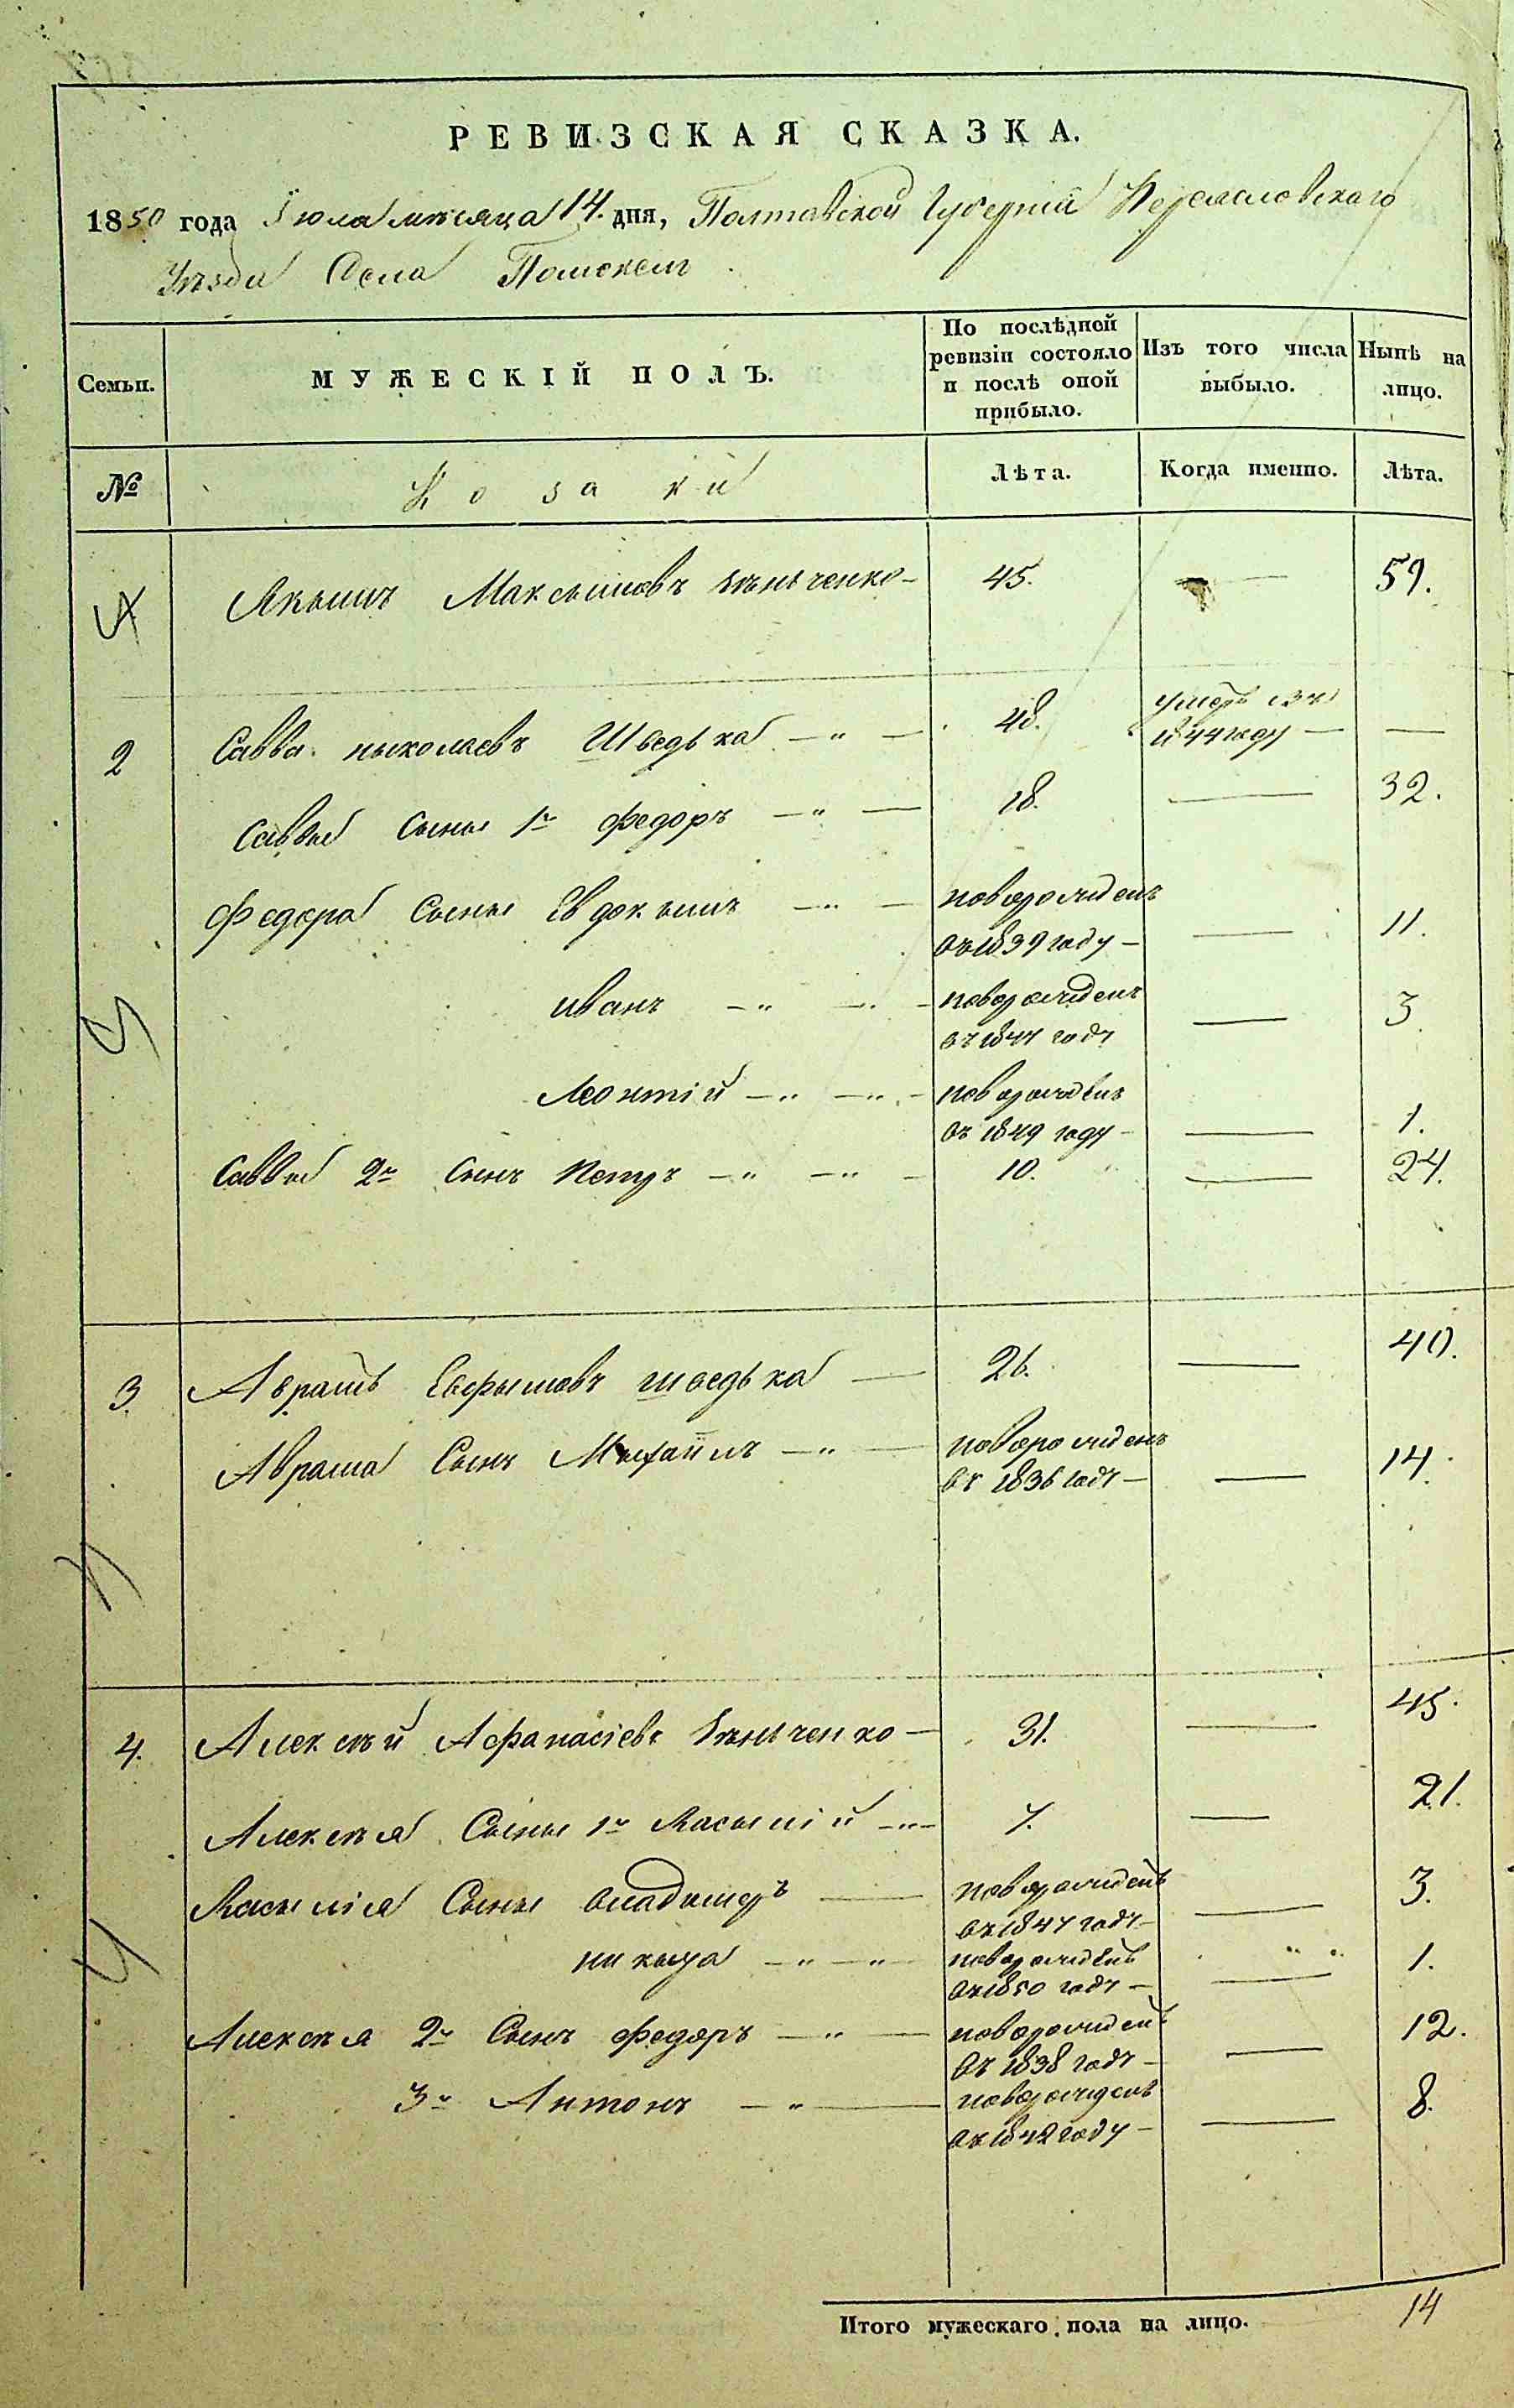 РЕВИЗСКАЯ СКАЗКА.
1850 года Іюла мѣсяца 14. дня, Полтавской Губерніи Переяславскаго
Уѣзда Села
Семьи.
МУЖЕСКІЙ ПОЛЪ.
По послѣдней ревизіи состояло и послѣ оной прибыло.
Изъ того числа выбыло.
Нынѣ на лицо.
№
Козаки
Лѣта.
Когда именно.
Лѣта.
Якымъ Максымовъ 45. — 59.
2 Савва Ныколаевъ Шведька —"— 48. умеръ
44 году — —
Саввы Сыны 1й Федоръ —"— 18. — 32.
Федора Сыны Евдокымъ —"— новорожденъ
въ 1839 году — — 11.
Иванъ —"—"— новорожденъ
въ 1847 году — 3
Леонтій —"—"— новорожденъ
въ 1849 году — — 1.
Саввы 2й Сынъ Петръ —"—"— 10. — 24.
3 Аврамъ Евфымовъ Шведька — 26. — 40.
Аврама Сынъ Мыхаилъ —"— новорожденъ
въ 1836 году — — 14.
4. Алексѣй Афанасіевъ — 31. — 45.
Алексѣя Сыны 1й Васылій —"— 7. — 21.
Васылія Сыны Владымеръ — новорожденъ
въ 1847 году — — 3.
Никыта —"—"— новорожденъ
въ 1850 году — — 1.
Алексѣя 2й Сынъ Федоръ —"— новорожденъ
въ 1838 году — — 12.
3й Антонъ —"— новорожденъ
въ 1842 году — — 8.
Итого мужескаго пола на лицо. 14